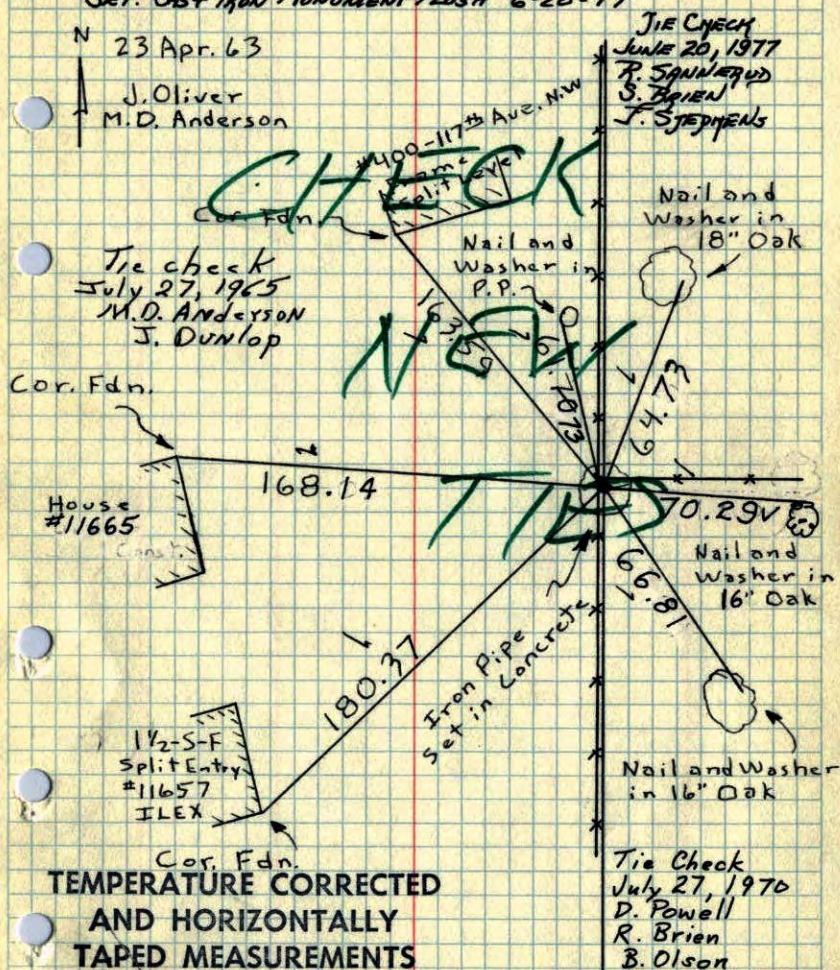 SET. CAST IRON MONUMENT FLUSH 6-20-77
N
23 Apr. 63
J. Oliver
M.D. Anderson
TIE CHECK
JUNE 20, 1977
R. SANNERUD
S. BRIEN
J. STEPHENS
#400-117th Ave. N.W
Frame
Split Level
CHECK
Cor. Fdn.
Nail and
Washer in
18" Oak
Nail and
Washer in
P.P.
Tie check
July 27, 1965
M.D. Anderson
J. Dunlop
163.59
64.73
NEW
Cor. Fdn.
168.14
House
#11665
Const.
TIES
70.29
Nail and
Washer in
16" Oak
66.81
180.37
Iron Pipe
Set in Concrete
1½-S-F
Split Entry
#11657
ILEX
Nail and Washer
in 16" Oak
Cor. Fdn.
TEMPERATURE CORRECTED
AND HORIZONTALLY
TAPED MEASUREMENTS
Tie Check
July 27, 1970
D. Powell
R. Brien
B. Olson